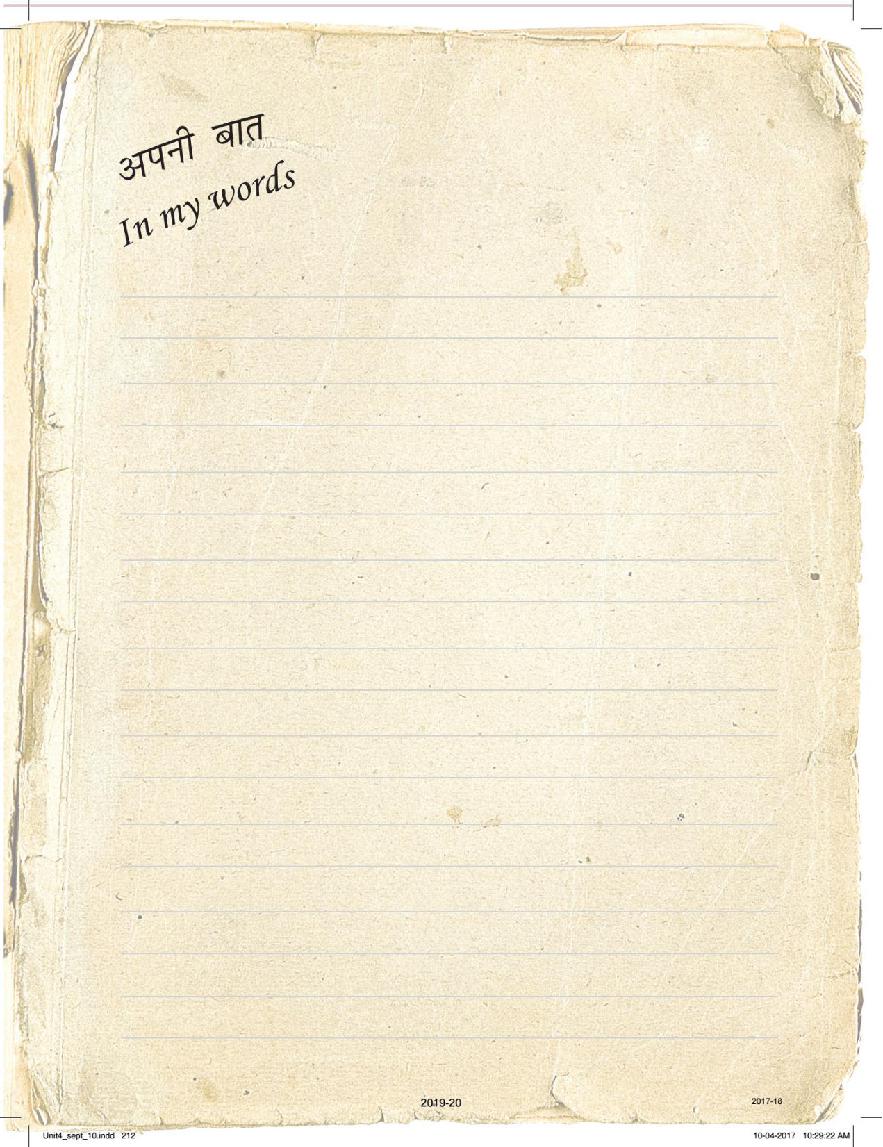 अपनी बात
In my words
2019-20
2017-18
Unit4_sept_10.indd 212
10-04-2017 10:29:22 AM